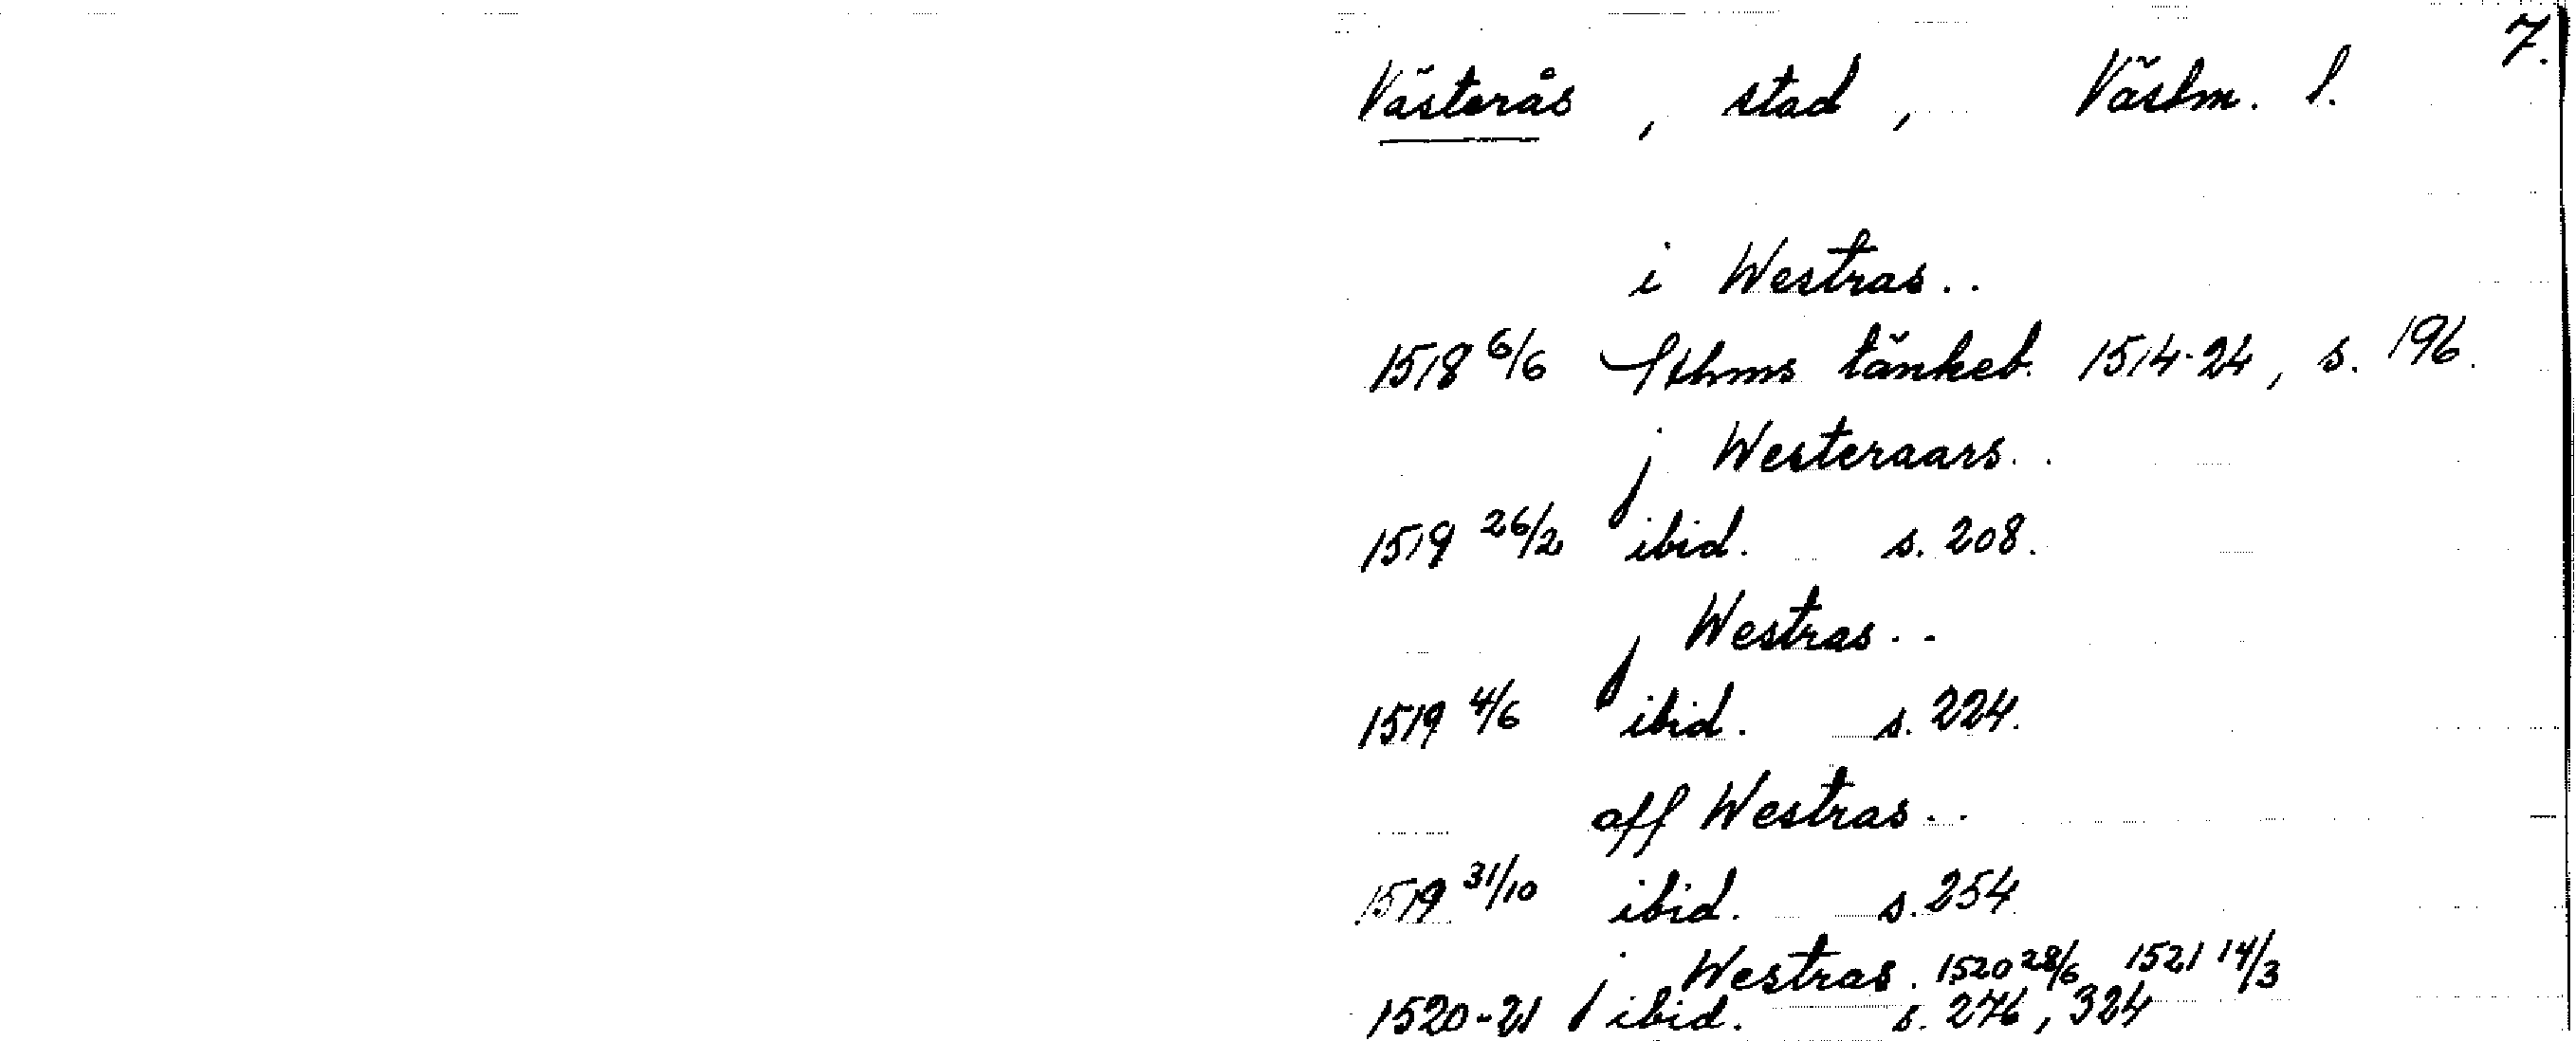 7.
Västerås, stad, Västm. l.
i Westras..
1518 6/6 Sthms tänkeb. 1514-24, s. 196.
j Westeraars..
1519 26/2 ibid. s. 208.
j Westras..
1519 4/6 ibid. s. 224.
aff Westras..
1519 31/10 ibid. s. 254
j Westras. 1520 28/6 1521 14/3
1520-21 ibid. s. 276, 324